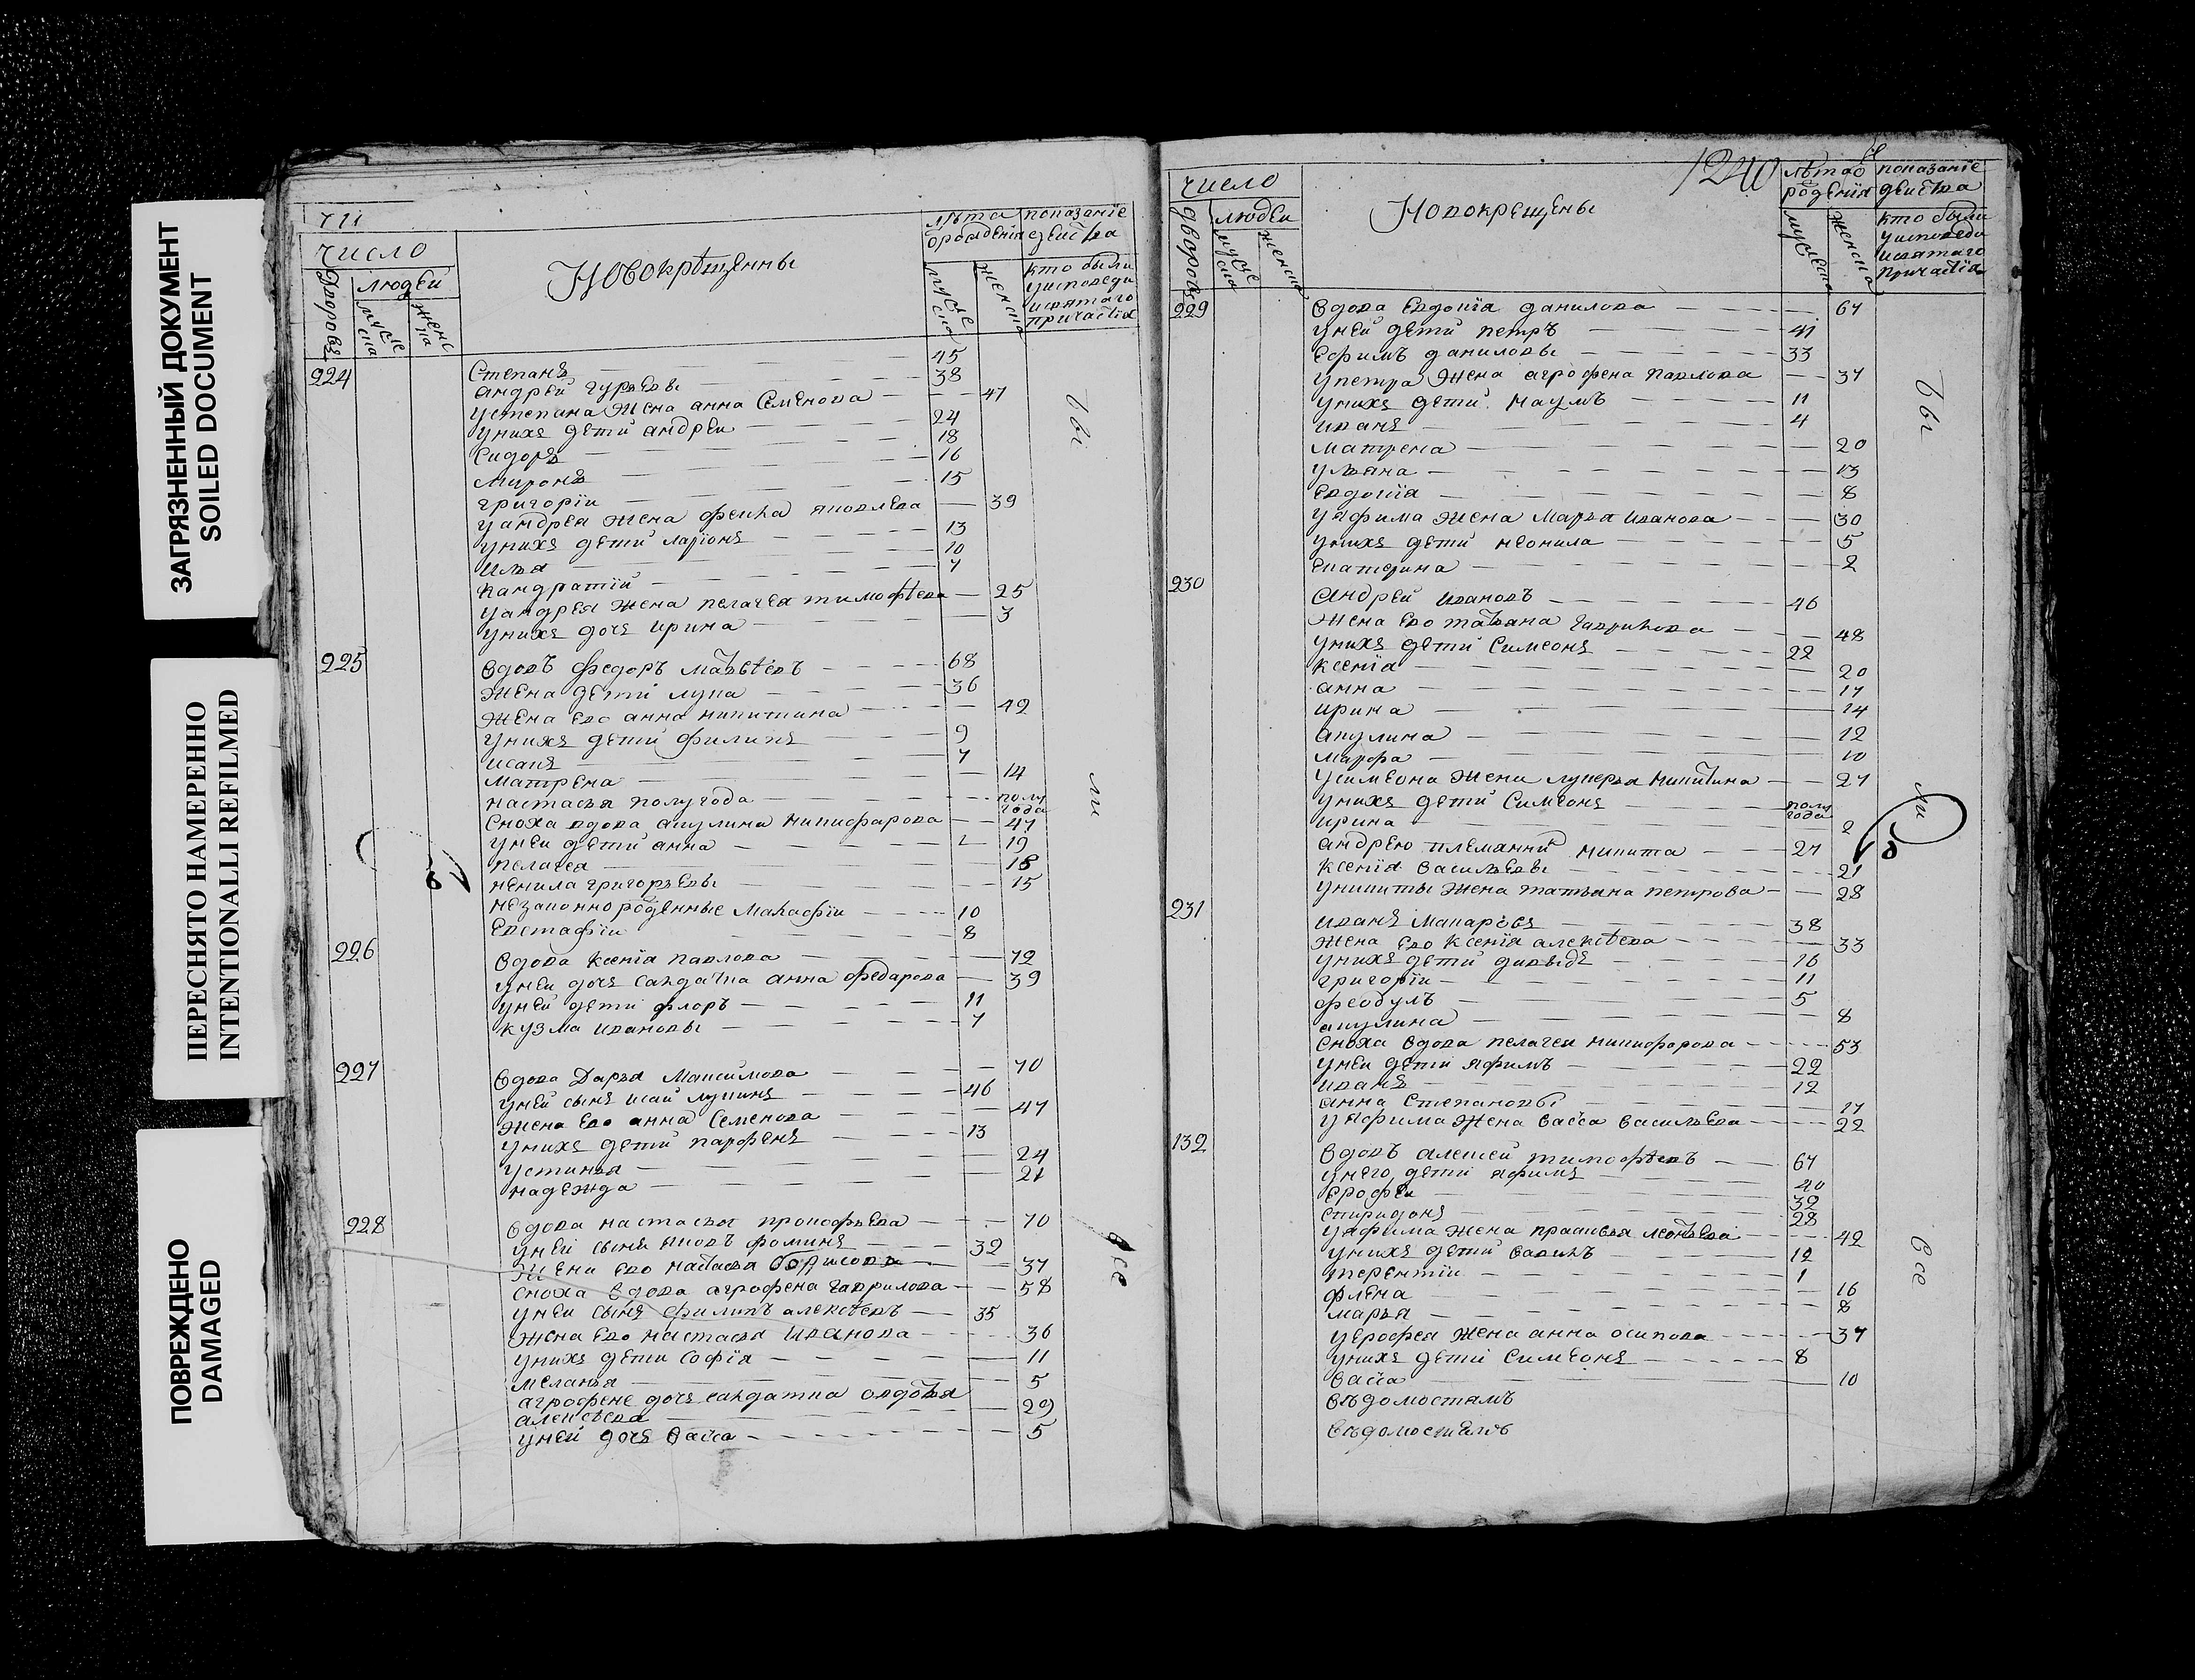 ЗАГРЯЗНЕННЫЙ ДОКУМЕНТ
SOILED DOCUMENT
ПЕРЕСНЯТО НАМЕРЕННО
INTENTIONALLI REFILMED
ПОВРЕЖДЕНО
DAMAGED
число
людей
Новокрѣщенны
лѣта
показанїе
кто были
уисповеди
исвятаго
причастїя
224
Степанъ 45
андрей гурьевы 38
устепана жена анна Семенова 47
унихъ дети андреи 24
Сидоръ 18
миронъ 16
григорїи 15
уандрея жена феика яковлева 39
унихъ дети ларїонъ 13
илья 10
кандратїй 7
уандрея жена пелагея тимофѣева 25
унихъ дочь ирина 3
225 вдовъ федоръ матвѣевъ 68
жена дети лупа 36
жена ево анна никитина 42
унихъ дети филипъ 9
исакъ 7
матрена 14
настасья полугода полу года
сноха вдова акулина никифарова 47
унеи дети анна 19
пелагея 18
ненила григорьевы 15
незаконнорожденные макафїи 10
Евстафїи 8
226 вдова ксенїа павлова 72
унеи дочь салдатка анна федарова 39
унеи дети флоръ 11
кузма ивановы 7
227 вдова Дарья Максимова 70
уней сынъ исаи лупинъ 46
жена ево анна Семенова 47
унихъ дети парфенъ 13
устинья 24
надежда 21
228 вдова настасья прокофьева 70
уней сынъ яковъ фоминъ 32
жена ево настасья борисова 37
сноха вдова агрофена гаврилова 58
унеи сынъ филипъ алексѣевъ 35
жена ево настасья Иванова 36
унихъ дети софїя 11
меланья 5
агрофене дочь салдатка овдотья
алексѣева 29
уней дочь васса 5
бы
ли
все
1240
число
дворовъ
людеи
Новокрещены
лѣта
показанїе
действа
кто были
уисповеди
исвятаго
причастїя
229 вдова Евдокїа данилова 67
уней дети петръ 41
Ефимъ даниловы 33
упетра жена агрофена павлова 37
унихъ дети наумъ 11
иванъ 4
матрена 20
ульяна 13
Евдокїа 8
уяфима жена марья иванова 30
унихъ дети неонила 5
Екатерина 2
230 Андрей ивановъ 46
жена ево татьана гаврилова 48
унихъ дети Симеонъ 22
ксенїа 20
анна 17
ирина 14
акулина 12
марфа 10
усимеона жена лукерья никитина 27
унихъ дети Симеонъ полу года
ирина 2
андрею племянни никита 27
ксенїя васильевы 21
уникиты жена татьяна петрова 28
231 иванъ макаровъ 38
жена ево ксенїя алексѣева 33
унихъ дети давыдъ 16
григорїи 11
феодулъ 5
акулина 8
сноха вдова пелагея никифорова 53
унеи дети яфимъ 22
иванъ 12
анна степановы 17
уяфима жена васса васильева 22
132 вдовъ алексей тимофѣевъ 67
унего дети яфимъ 40
ерофеи 32
спиридонъ 28
уяфима жена прасковья леонтьева 42
унихъ дети вавилъ 12
терентїи 1
флена 16
марья 8
уерофея жена анна осипова 37
унихъ дети Симеонъ 8
васса 10
вѣдомостямъ
вѣдомостямъ
бы
ли
все